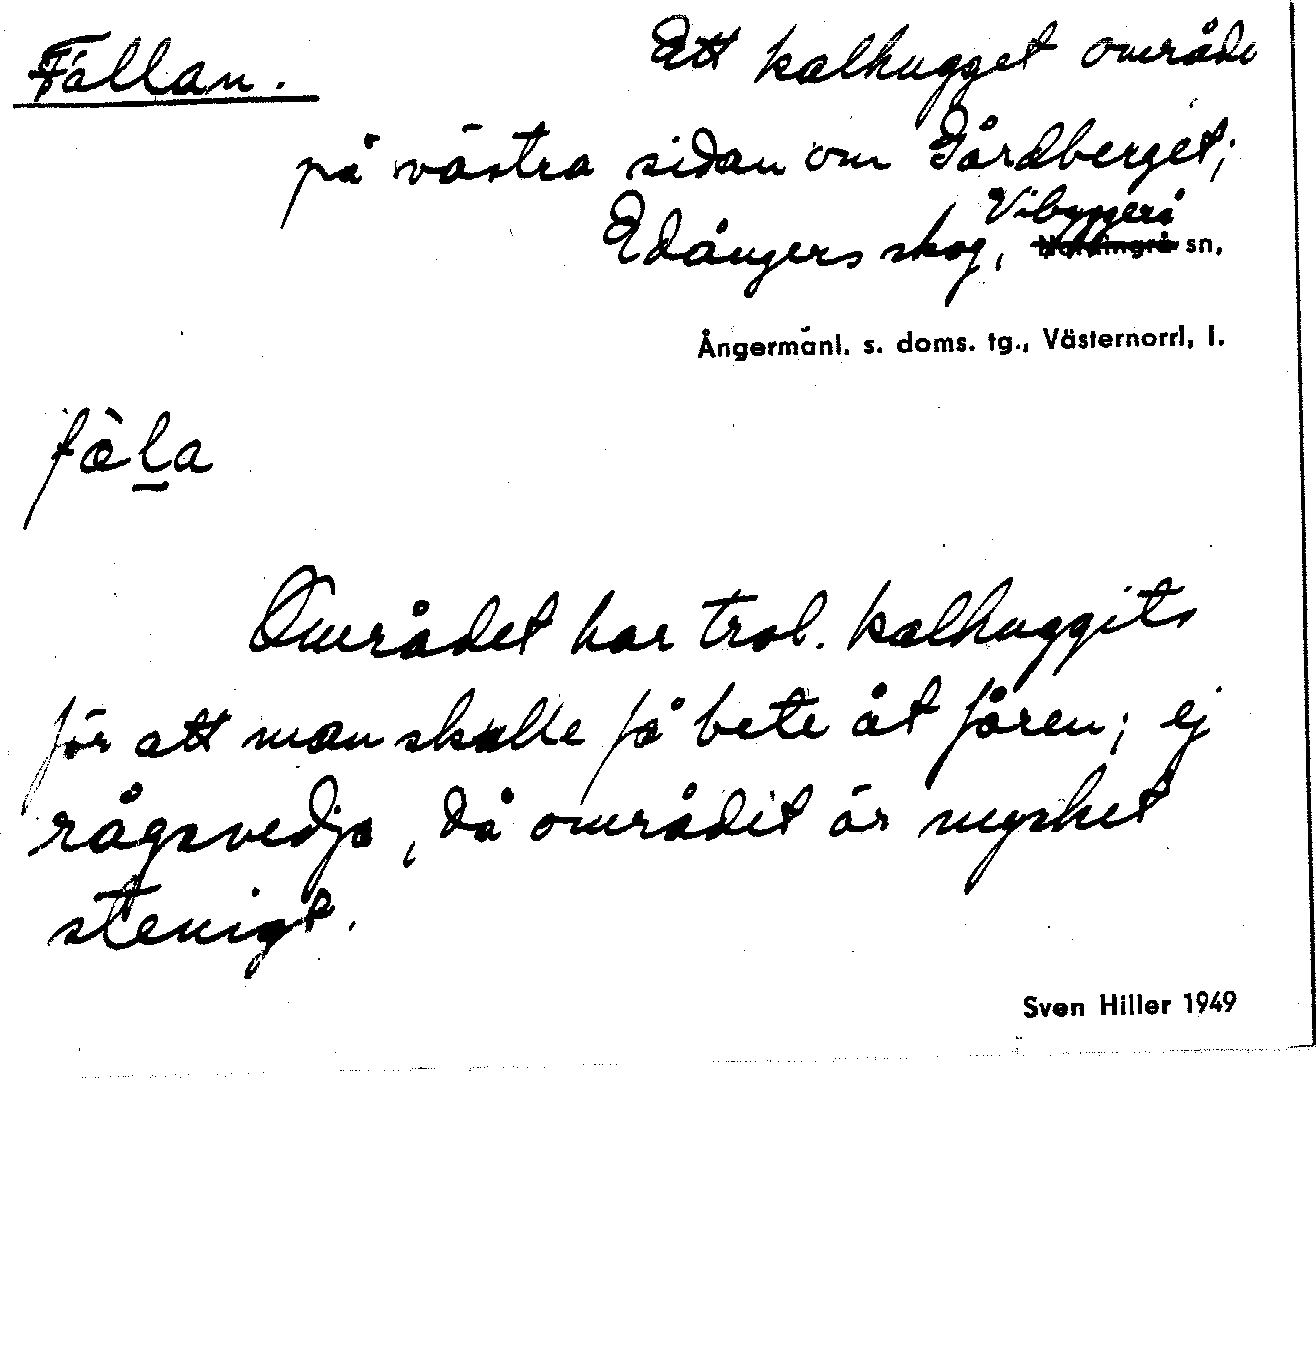 Fällan. Ett kalhugget område
på västra sidan om Gårdberget;
Edångers skog, Vibyggerå
Nordingrå sn.
Ångermanl. s. doms. tg., Västernorrl, l.
fäla
Området har trol. kalhuggits
för att man skulle få bete åt fåren; ej
rågsvedja, då området är mycket
stenigt.
Sven Hiller 1949